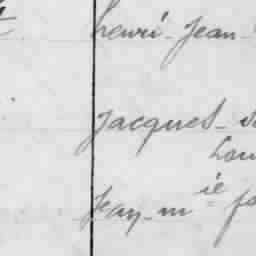 henri-Jean-
Jacques-
Lou
Jean-m ie